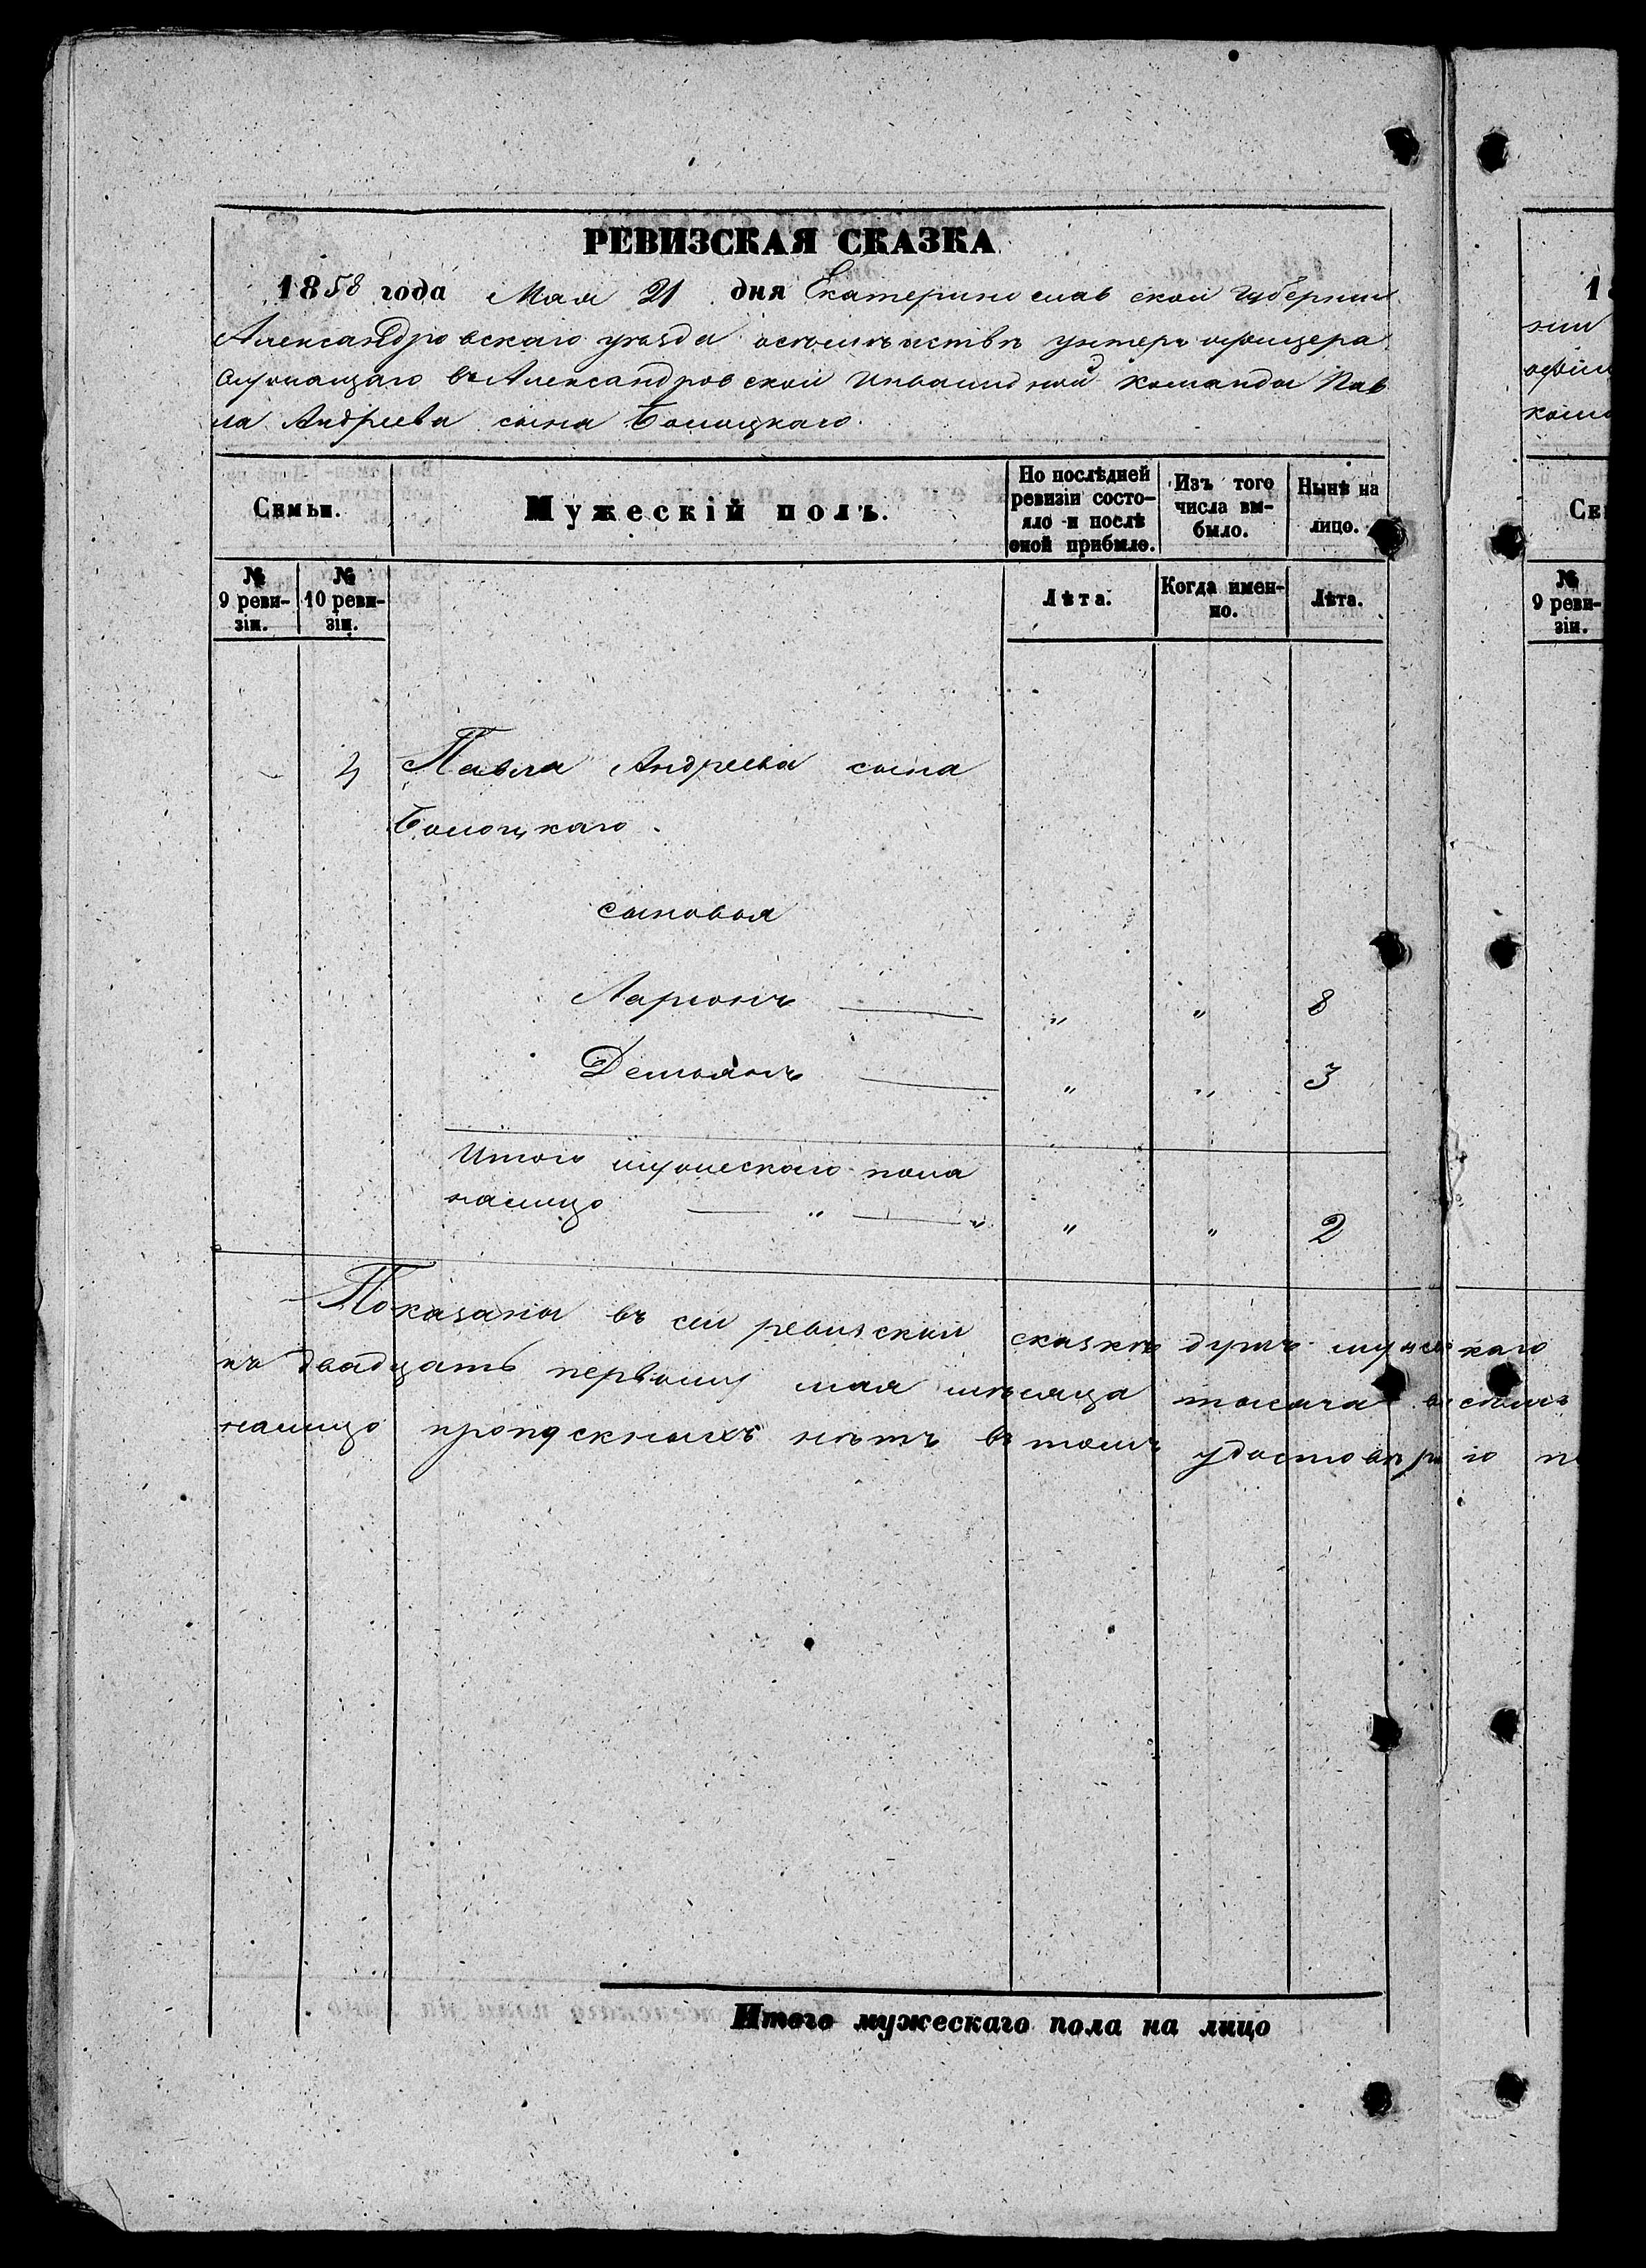 РЕВИЗСКАЯ СКАЗКА
1858 года Мая 21 дня Екатеринославской Губернии
Александровскаго уезда о семействѣ унтеръ офицера
служащаго въ Александровской Инвалидной команды Пав
ла Андреева сына Болоцкаго.
Семьи.
Мужескій полъ.
По послѣдней ревизіи состо-
яло и послѣ
оной прибыло.
Изъ того
числа вы-
было.
Нынѣ на
лицо.
№
9 реви-
зіи.
№
10 реви-
зіи.
Лѣта.
Когда имен-
но.
Лѣта.
4 Павла Андреева сына
Болоцкаго.
сыновья
Ларионъ „ „ 8
Демьянъ „ „ 3
Итого мужескаго пола
налицо „ „ „ „ 2
Показаны въ сей ревизской сказкѣ душъ мужескаго
къ двадцать первому мая мѣсяца тысяча восемь
налицо пропускныхъ нѣтъ въ томъ удостовѣрю
Итого мужескаго пола на лицо
18
нии
офи
кома
Се
№
9 реви-
зіи.